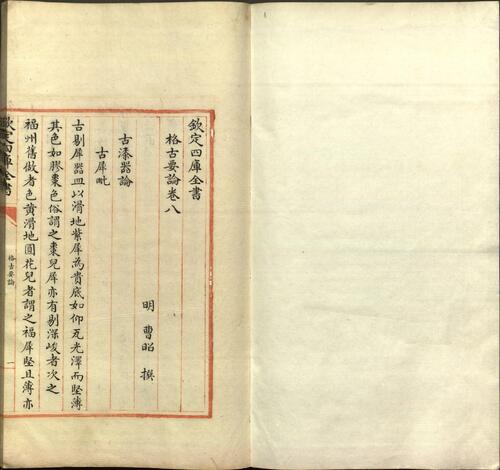 欽定四庫全書
格古要論卷八
明 曹昭 撰
古漆器論
古犀毗
古剔犀器皿以滑地紫犀為貴底如仰瓦光澤而堅薄
其色如膠棗色俗謂之棗兒犀亦有剔深峻者次之
福州舊做者色黄滑地圓花兒者謂之福犀堅且薄亦
欽定四庫全書
格古要論
一